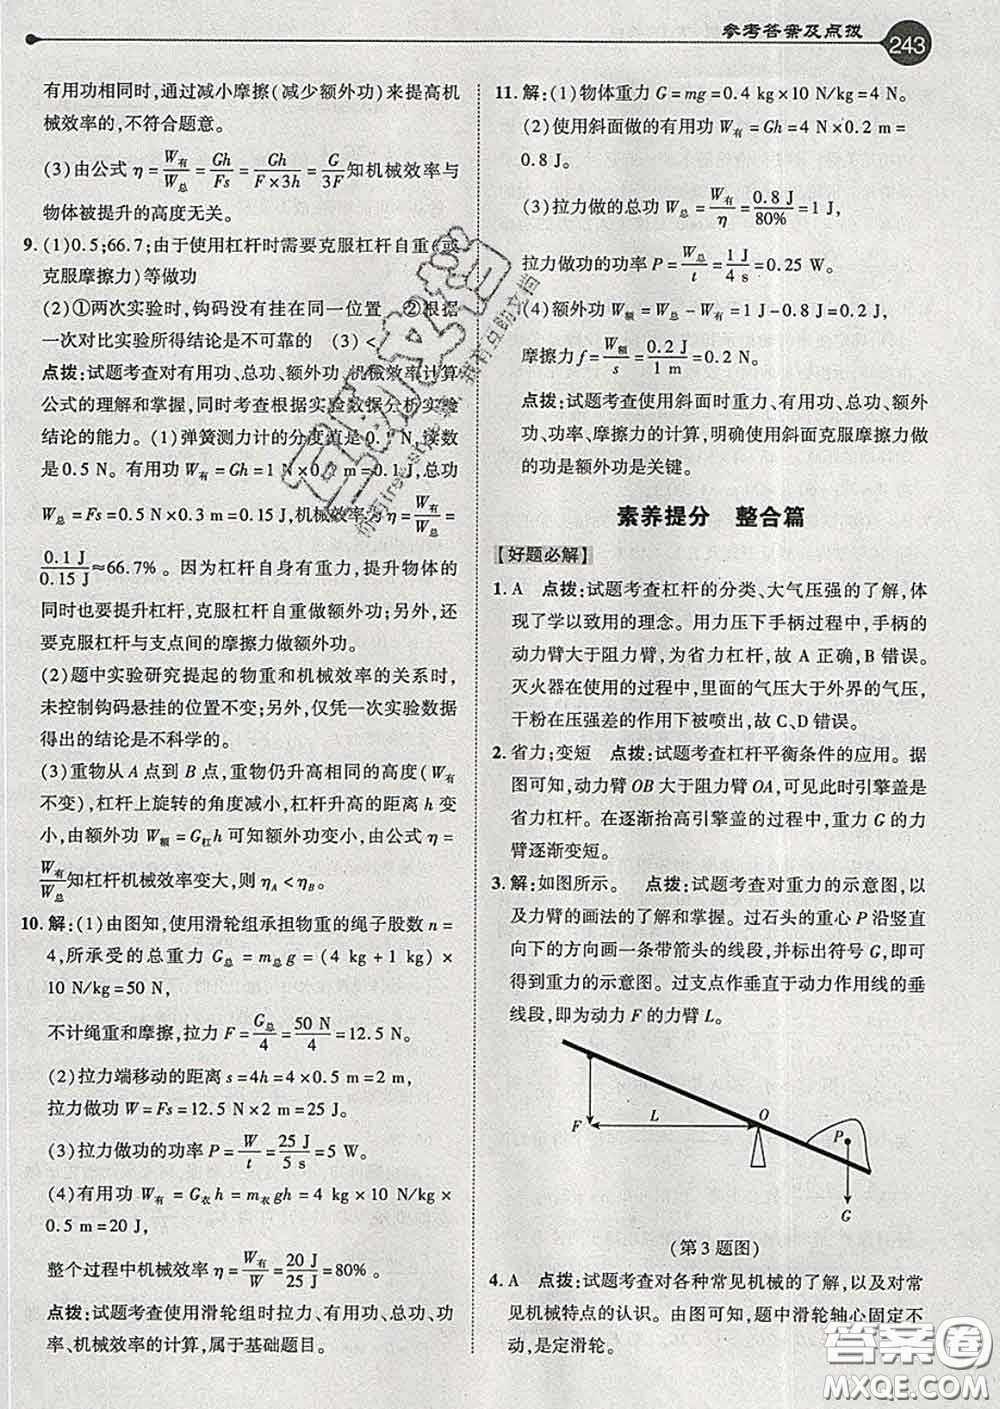 参考答案及点拨 243
有用功相同时,通过减小摩擦(减少额外功)来提高机
械效率的,不符合题意。
(3)由公式 η = W有/W总 = Gh/Fs = Gh/(F×3h) = G/3F 知机械效率与
物体被提升的高度无关。
9. (1)0.5;66.7;由于使用杠杆时需要克服杠杆自重(或
克服摩擦力)等做功
(2)①两次实验时,钩码没有挂在同一位置 ②根据
一次对比实验所得结论是不可靠的 (3)<
点拨:试题考查对有用功、总功、额外功、机械效率计算
公式的理解和掌握,同时考查根据实验数据分析实验
结论的能力。(1)弹簧测力计的分度值是0.1 N,读数
是0.5 N。有用功 W有=Gh=1 N×0.1 m=0.1 J,总功
W总=Fs=0.5 N×0.3 m=0.15 J,机械效率为 η = W有/W总 =
0.1 J/0.15 J ≈66.7%。因为杠杆自身有重力,提升物体的
同时也要提升杠杆,克服杠杆自重做额外功;另外,还
要克服杠杆与支点间的摩擦力做额外功。
(2)题中实验研究提起的物重和机械效率的关系时,
未控制钩码悬挂的位置不变;另外,仅凭一次实验数据
得出的结论是不科学的。
(3)重物从A点到B点,重物仍升高相同的高度(W有
不变),杠杆上旋转的角度减小,杠杆升高的距离 h 变
小,由额外功 W额=G杠h 可知额外功变小,由公式 η =
W有/W总 知杠杆机械效率变大,则 ηA<ηB。
10. 解:(1)由图知,使用滑轮组承担物重的绳子股数 n =
4,所承受的总重力 G总 = m总g = (4 kg + 1 kg) ×
10 N/kg=50 N,
不计绳重和摩擦,拉力 F = G总/4 = 50 N/4 = 12.5 N。
(2)拉力端移动的距离 s=4h=4×0.5 m=2 m,
拉力做功 W=Fs=12.5 N×2 m=25 J。
(3)拉力做功的功率 P = W/t = 25 J/5 s = 5 W。
(4)有用功 W有=G衣h=m衣gh=4 kg×10 N/kg×
0.5 m=20 J,
整个过程中机械效率 η = W有/W = 20 J/25 J = 80%。
点拨:试题考查使用滑轮组时拉力、有用功、总功、功
率、机械效率的计算,属于基础题目。
11. 解:(1)物体重力 G=mg=0.4 kg×10 N/kg=4 N。
(2)使用斜面做的有用功 W有=Gh=4 N×0.2 m=
0.8 J。
(3)拉力做的总功 W总 = W有/η = 0.8 J/80% = 1 J,
拉力做功的功率 P = W总/t = 1 J/4 s = 0.25 W。
(4)额外功 W额=W总-W有=1 J-0.8 J=0.2 J,
摩擦力 f = W额/s = 0.2 J/1 m = 0.2 N。
点拨:试题考查使用斜面时重力、有用功、总功、额外
功、功率、摩擦力的计算,明确使用斜面克服摩擦力做
的功是额外功是关键。
素养提分 整合篇
【好题必解】
1. A 点拨:试题考查杠杆的分类、大气压强的了解,体
现了学以致用的理念。用力压下手柄过程中,手柄的
动力臂大于阻力臂,为省力杠杆,故 A 正确,B 错误。
灭火器在使用的过程中,里面的气压大于外界的气压,
干粉在压强差的作用下被喷出,故 C、D 错误。
2. 省力;变短 点拨:试题考查杠杆平衡条件的应用。据
图可知,动力臂 OB 大于阻力臂 OA,可知此时引擎盖是
省力杠杆。在逐渐抬高引擎盖的过程中,重力 G 的力
臂逐渐变短。
3. 解:如图所示。 点拨:试题考查对重力的示意图,以
及力臂的画法的了解和掌握。过石头的重心 P 沿竖直
向下的方向画一条带箭头的线段,并标出符号 G,即可
得到重力的示意图。过支点作垂直于动力作用线的垂
线段,即为动力 F 的力臂 L。
F L O P G
(第3题图)
4. A 点拨:试题考查对各种常见机械的了解,以及对常
见机械特点的认识。由图可知,题中滑轮轴心固定不
动,是定滑轮。
答案圈
MXQE.COM